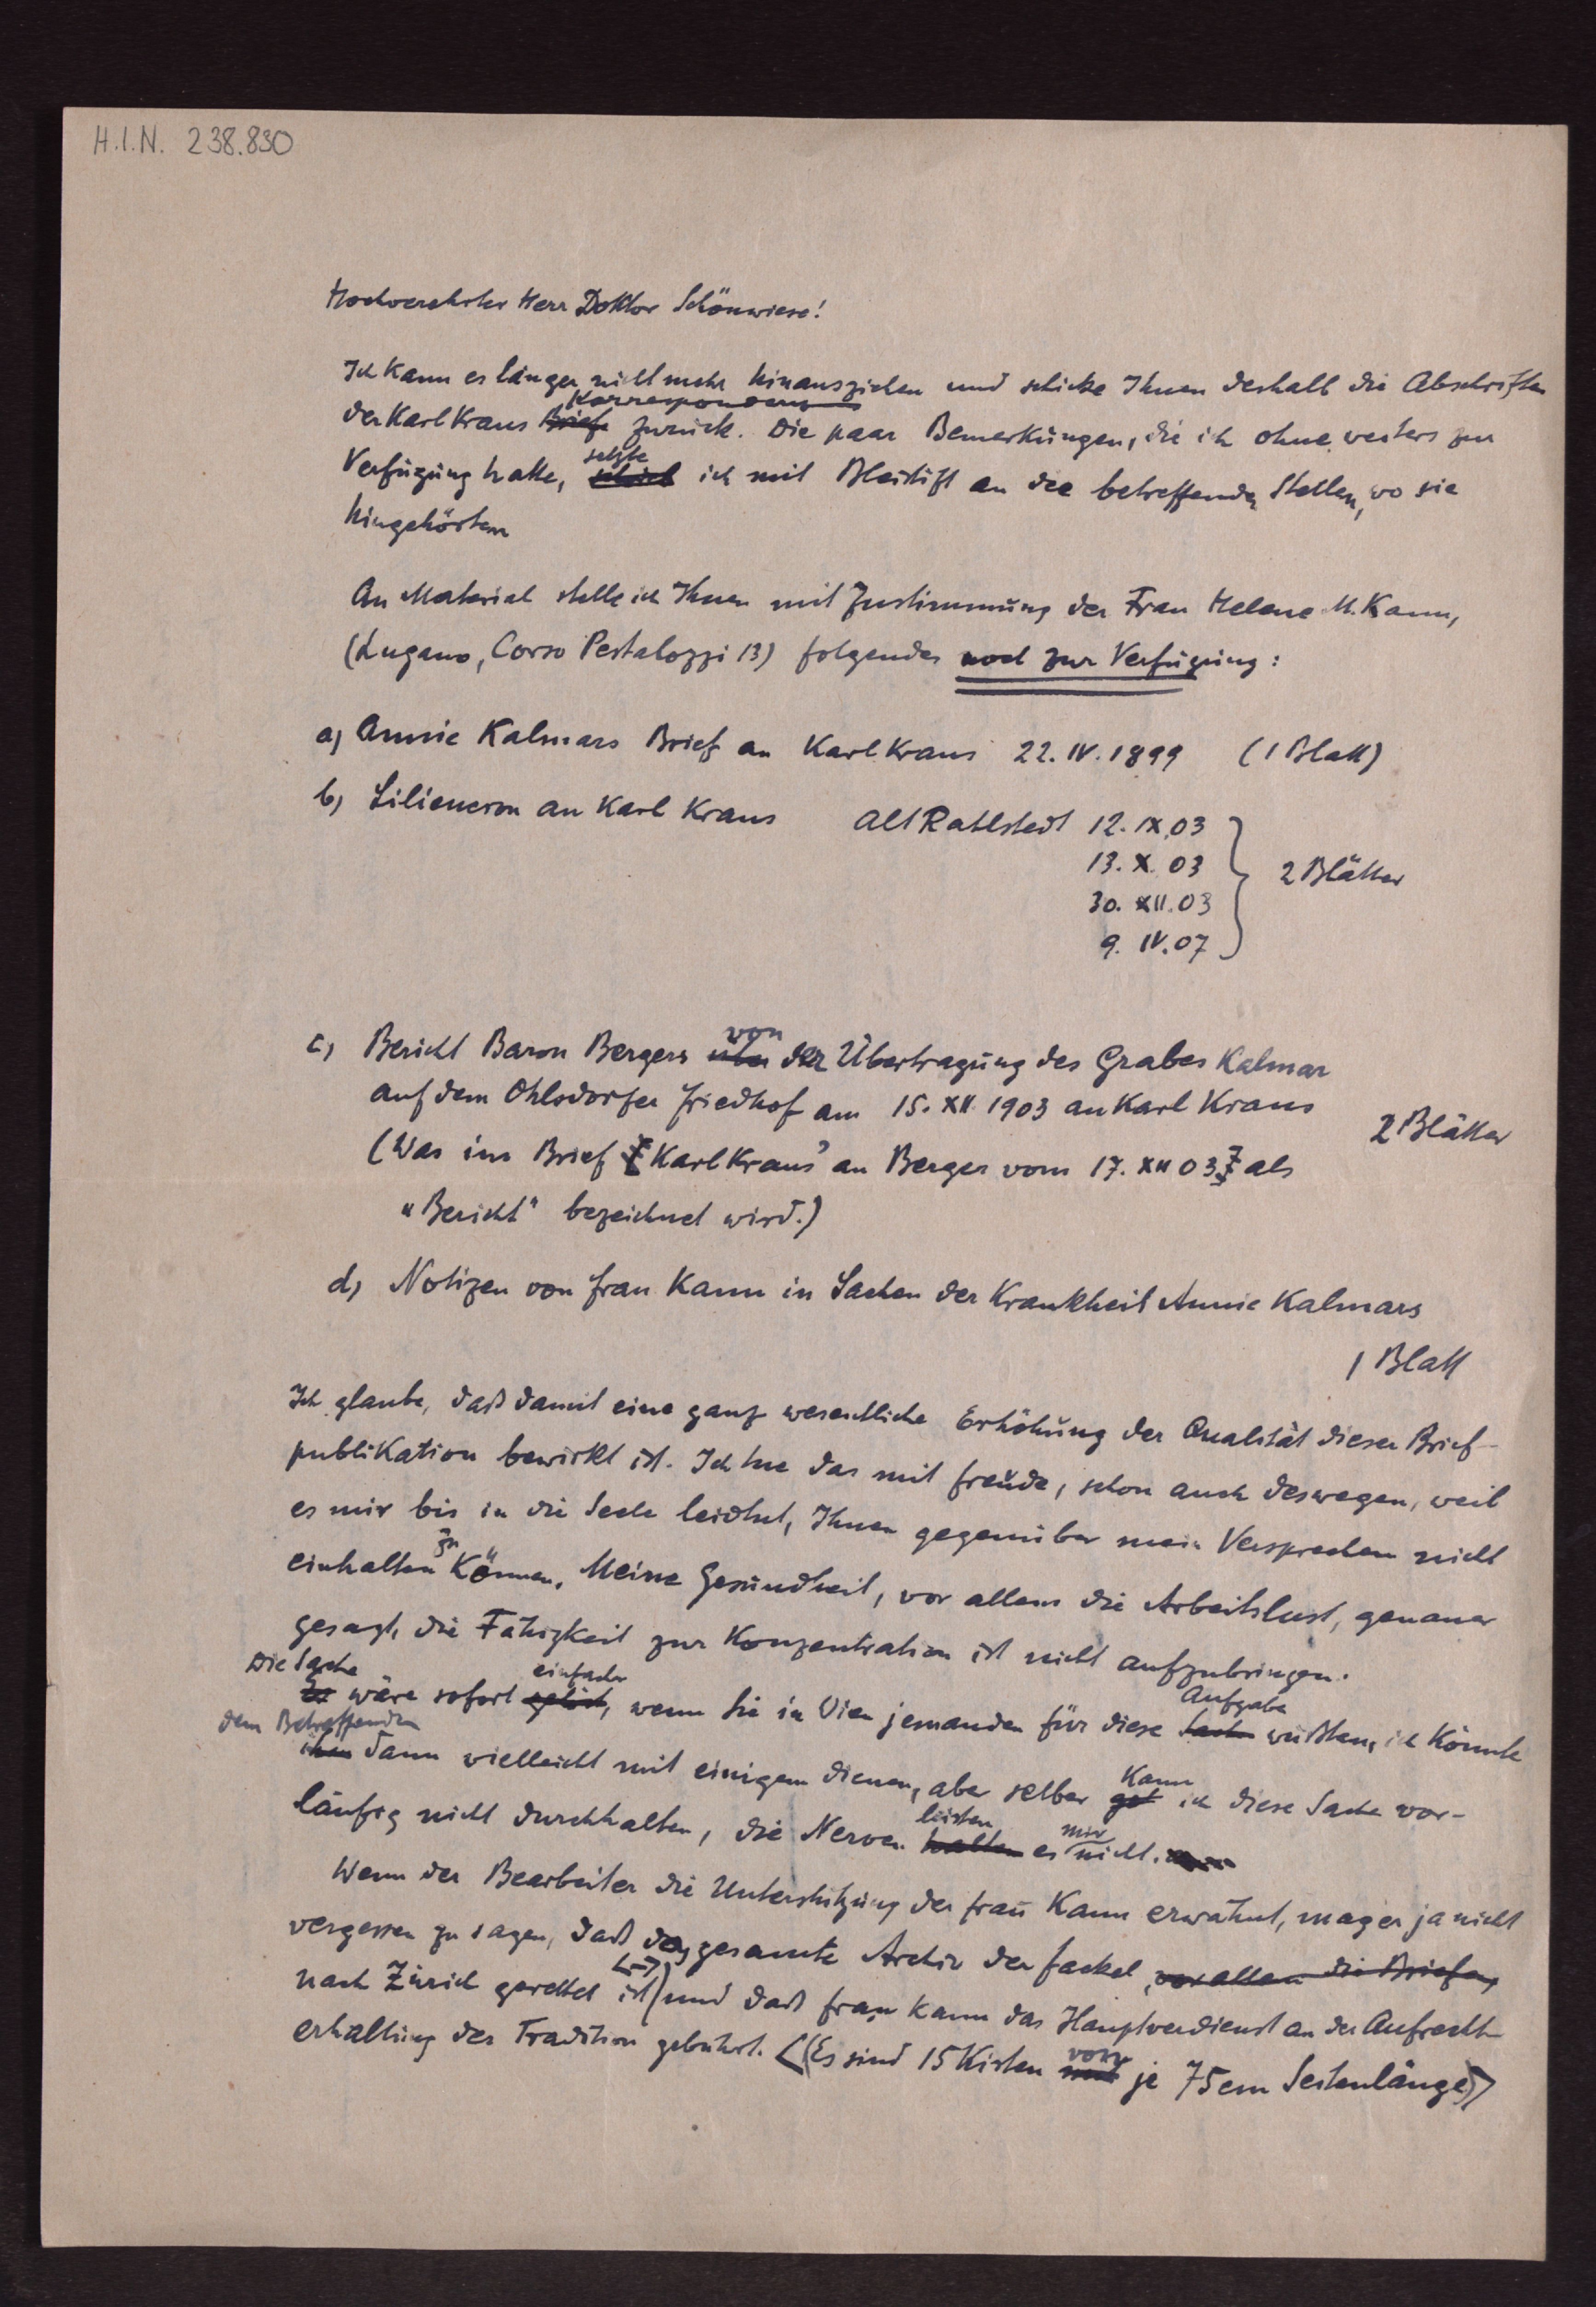 H.I.N. 238.830
Hochverehrter Herr Doktor Schönwiese!
Ich kann es länger nicht mehr hinausziehen und schicke Ihnen deshalb die Abschriften
Korrespondenz
der Karl Kraus Briefe zurück. Die paar Bemerkungen, die ich ohne weiters zur
setzte
Verfügung hatte, schrieb ich mit Bleistift an die betreffenden Stellen, wo sie
hingehörten
An Material stelle ich Ihnen mit Zustimmung der Frau Helene M. Kann,
(Lugano, Corso Pestalozzi 13) folgendes noch zur Verfügung:
a) Annie Kalmars Brief an Karl Kraus 22. IV. 1899 (1 Blatt)
b) Liliencron an Karl Kraus Alt Rahlstedt 12. IX. 03
13. X. 03
30. XII. 03
9. IV. 07
2 Blätter
von
c) Bericht Baron Bergers über der Übertragung des Grabes Kalmar
auf dem Ohlsdorfer Friedhof am 15. XII. 1903 an Karl Kraus
2 Blätter
(Was im Brief Karl Kraus' an Berger vom 17. XII 03 als
"Bericht" bezeichnet wird.)
d) Notizen von Frau Kann in Sachen der Krankheit Annie Kalmars
1 Blatt
Ich glaube, daß damit eine ganz wesentliche Erhöhung der Qualität dieser Brief-
publikation bewirkt ist. Ich tue das mit Freude, schon auch deswegen, weil
es mir bis in die Seele leidtut, Ihnen gegenüber mein Versprechen nicht
zu
einhalten können. Meine Gesundheit, vor allem die Arbeitslust, genauer
gesagt, die Fähigkeit zur Konzentration ist nicht aufzubringen.
Die Sache einfacher Aufgabe
Es wäre sofort gelöst, wenn Sie in Wien jemanden für diese Sache wüßten, ich könnte
dem Betreffenden
ihm dann vielleicht mit einigem dienen, aber selber
kann
ich diese Sache vor-
leisten mir
läufig nicht durchhalten, die Nerven halten es nicht.
Wenn der Bearbeiter die Unterstützung der Frau Kann erwähnt, mag er ja nicht
vergessen zu sagen, daß das gesamte Archiv der Fackel, vor allem die Briefe,
nach Zürich gerettet ist und daß Frau Kann das Hauptverdienst an der Aufrecht-
von
erhaltung der Tradition gebührt. <(Es sind 15 Kisten mit je 75 cm Seitenlänge)>